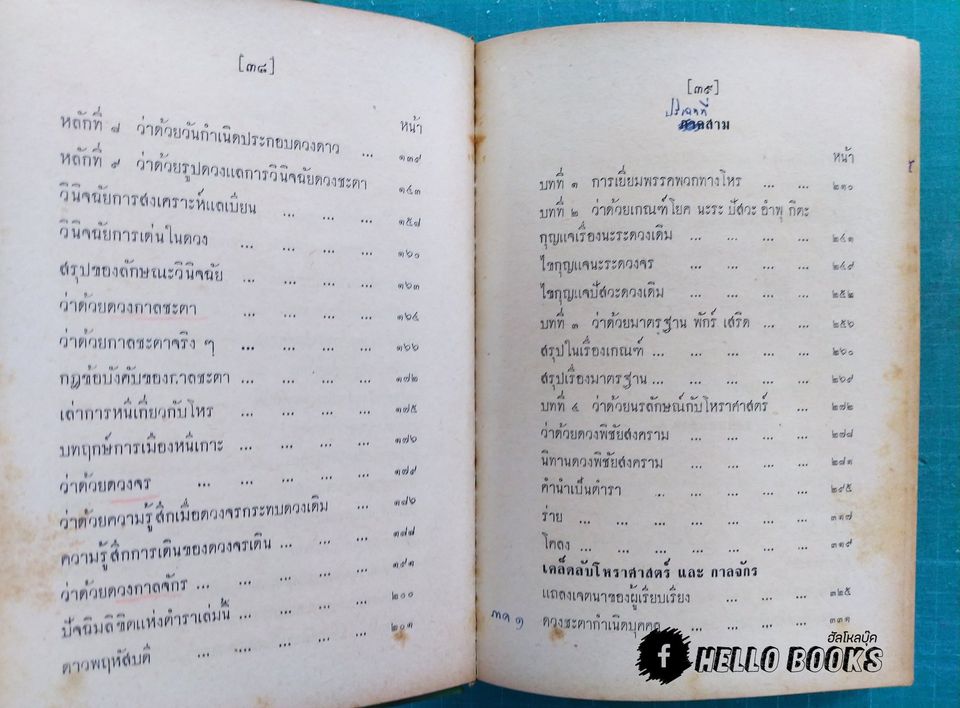 [๓๘]
หน้า
หลักที่ ๘ ว่าด้วยวันกำเนิดประกอบดวงดาว ... ๑๓๙
หลักที่ ๙ ว่าด้วยรูปดวงแลการวินิจฉัยดวงชะตา ๑๔๓
วินิจฉัยการสงเคราะห์แลเบียน ... ... ... ๑๕๘
วินิจฉัยการเด่นในดวง ... ... ... ๑๖๐
สรุปของลักษณะวินิจฉัย ... ... ... ๑๖๓
ว่าด้วยดวงกาลชะตา ... ... ... ๑๖๔
ว่าด้วยกาลชะตาจริง ๆ ... ... ... ๑๖๖
กฎข้อบังคับของกาลชะตา ... ... ... ๑๗๒
เล่าการหนีเกี่ยวกับโหร ... ... ... ๑๗๕
บทฤกษ์การเมืองหนีเกาะ ... ... ... ๑๗๖
ว่าด้วยดวงจร ... ... ... ... ๑๗๙
ว่าด้วยความรู้สึกเมื่อดวงจรกระทบดวงเดิม ... ๑๘๖
ความรู้สึกการเดินของดวงจรเดิน ... ... ... ๑๘๘
ว่าด้วยดวงกาลจักร ... ... ... ... ๑๙๑
ปัจฉิมลิขิตแห่งตำราเล่มนี้ ... ... ... ๒๐๐
ดาวพฤหัสบดี ... ... ... ... ๒๐๑
[๓๙]
สาม
หน้า
บทที่ ๑ การเยี่ยมพรรคพวกทางโหร ... ... ๒๑๐
บทที่ ๒ ว่าด้วยเกณฑ์โยค นะระ ปัสวะ อำพุ กีตะ
กุญแจเรื่องนะระดวงเดิม ... ... ... ... ๒๔๑
ไขกุญแจนะระดวงจร ... ... ... ... ๒๔๙
ไขกุญแจปัสวะดวงเดิม ... ... ... ... ๒๕๒
บทที่ ๓ ว่าด้วยมาตรฐาน พักร์ เสริด ... ... ๒๕๖
สรุปในเรื่องเกณฑ์ ... ... ... ... ... ๒๖๐
สรุปเรื่องมาตรฐาน ... ... ... ... ... ๒๖๙
บทที่ ๔ ว่าด้วยนรลักษณ์กับโหราศาสตร์ ... ๒๗๒
ว่าด้วยดวงพิชัยสงคราม ... ... ... ... ๒๗๘
นิทานดวงพิชัยสงคราม ... ... ... ... ๒๘๑
คำนำเป็นตำรา ... ... ... ... ๒๙๕
ร่าย ... ... ... ... ... ... ๓๑๗
โคลง ... ... ... ... ... ... ๓๑๙
เคล็ดลับโหราศาสตร์ และ กาลจักร
แถลงเจตนาของผู้เรียบเรียง ... ... ... ๓๒๕
ภาค ๑ ดวงชะตากำเนิดบุคคล ... ๓๓๑
ฮัลโหลบุ๊ค
f HELLO BOOKS